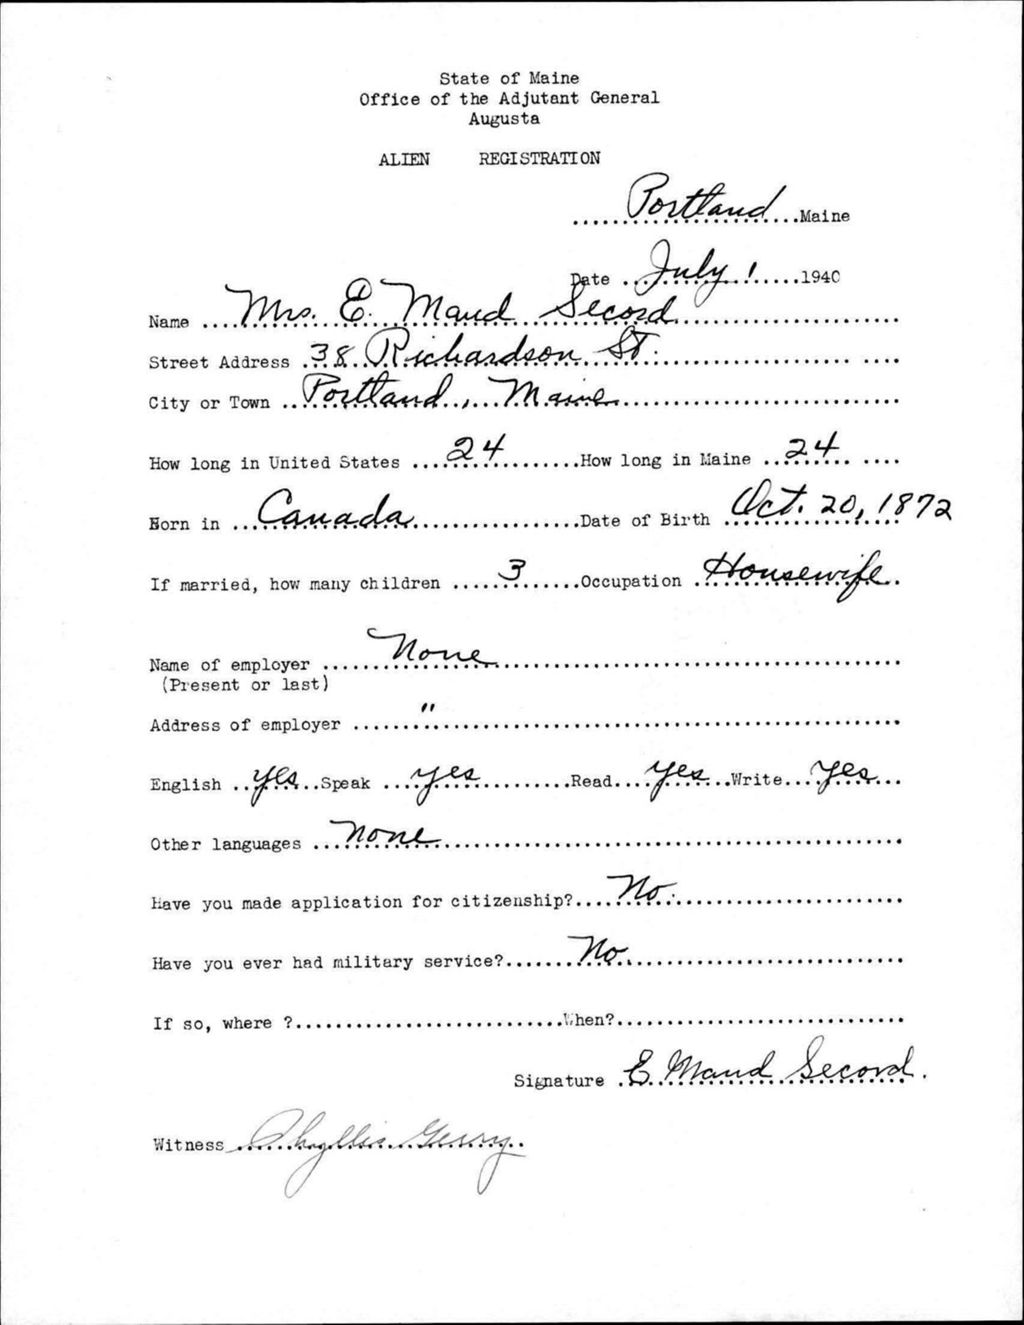 State of Maine
Office of the Adjutant General
Augusta
ALIEN REGISTRATION
Portland Maine
Date July 1 1940
Name Mrs. E. Maud Secord
Street Address 38 Richardson St.
City or Town Portland, Maine
How long in United States 24 How long in Maine 24
Born in Canada Date of Birth Oct. 20, 1872
If married, how many children 3 Occupation Housewife
Name of employer None
(Present or last)
Address of employer "
English yes Speak yes Read yes Write yes
Other languages none
Have you made application for citizenship? No.
Have you ever had military service? No.
If so, where ? When?
Signature E Maud Secord.
Witness Phyllis Gerry